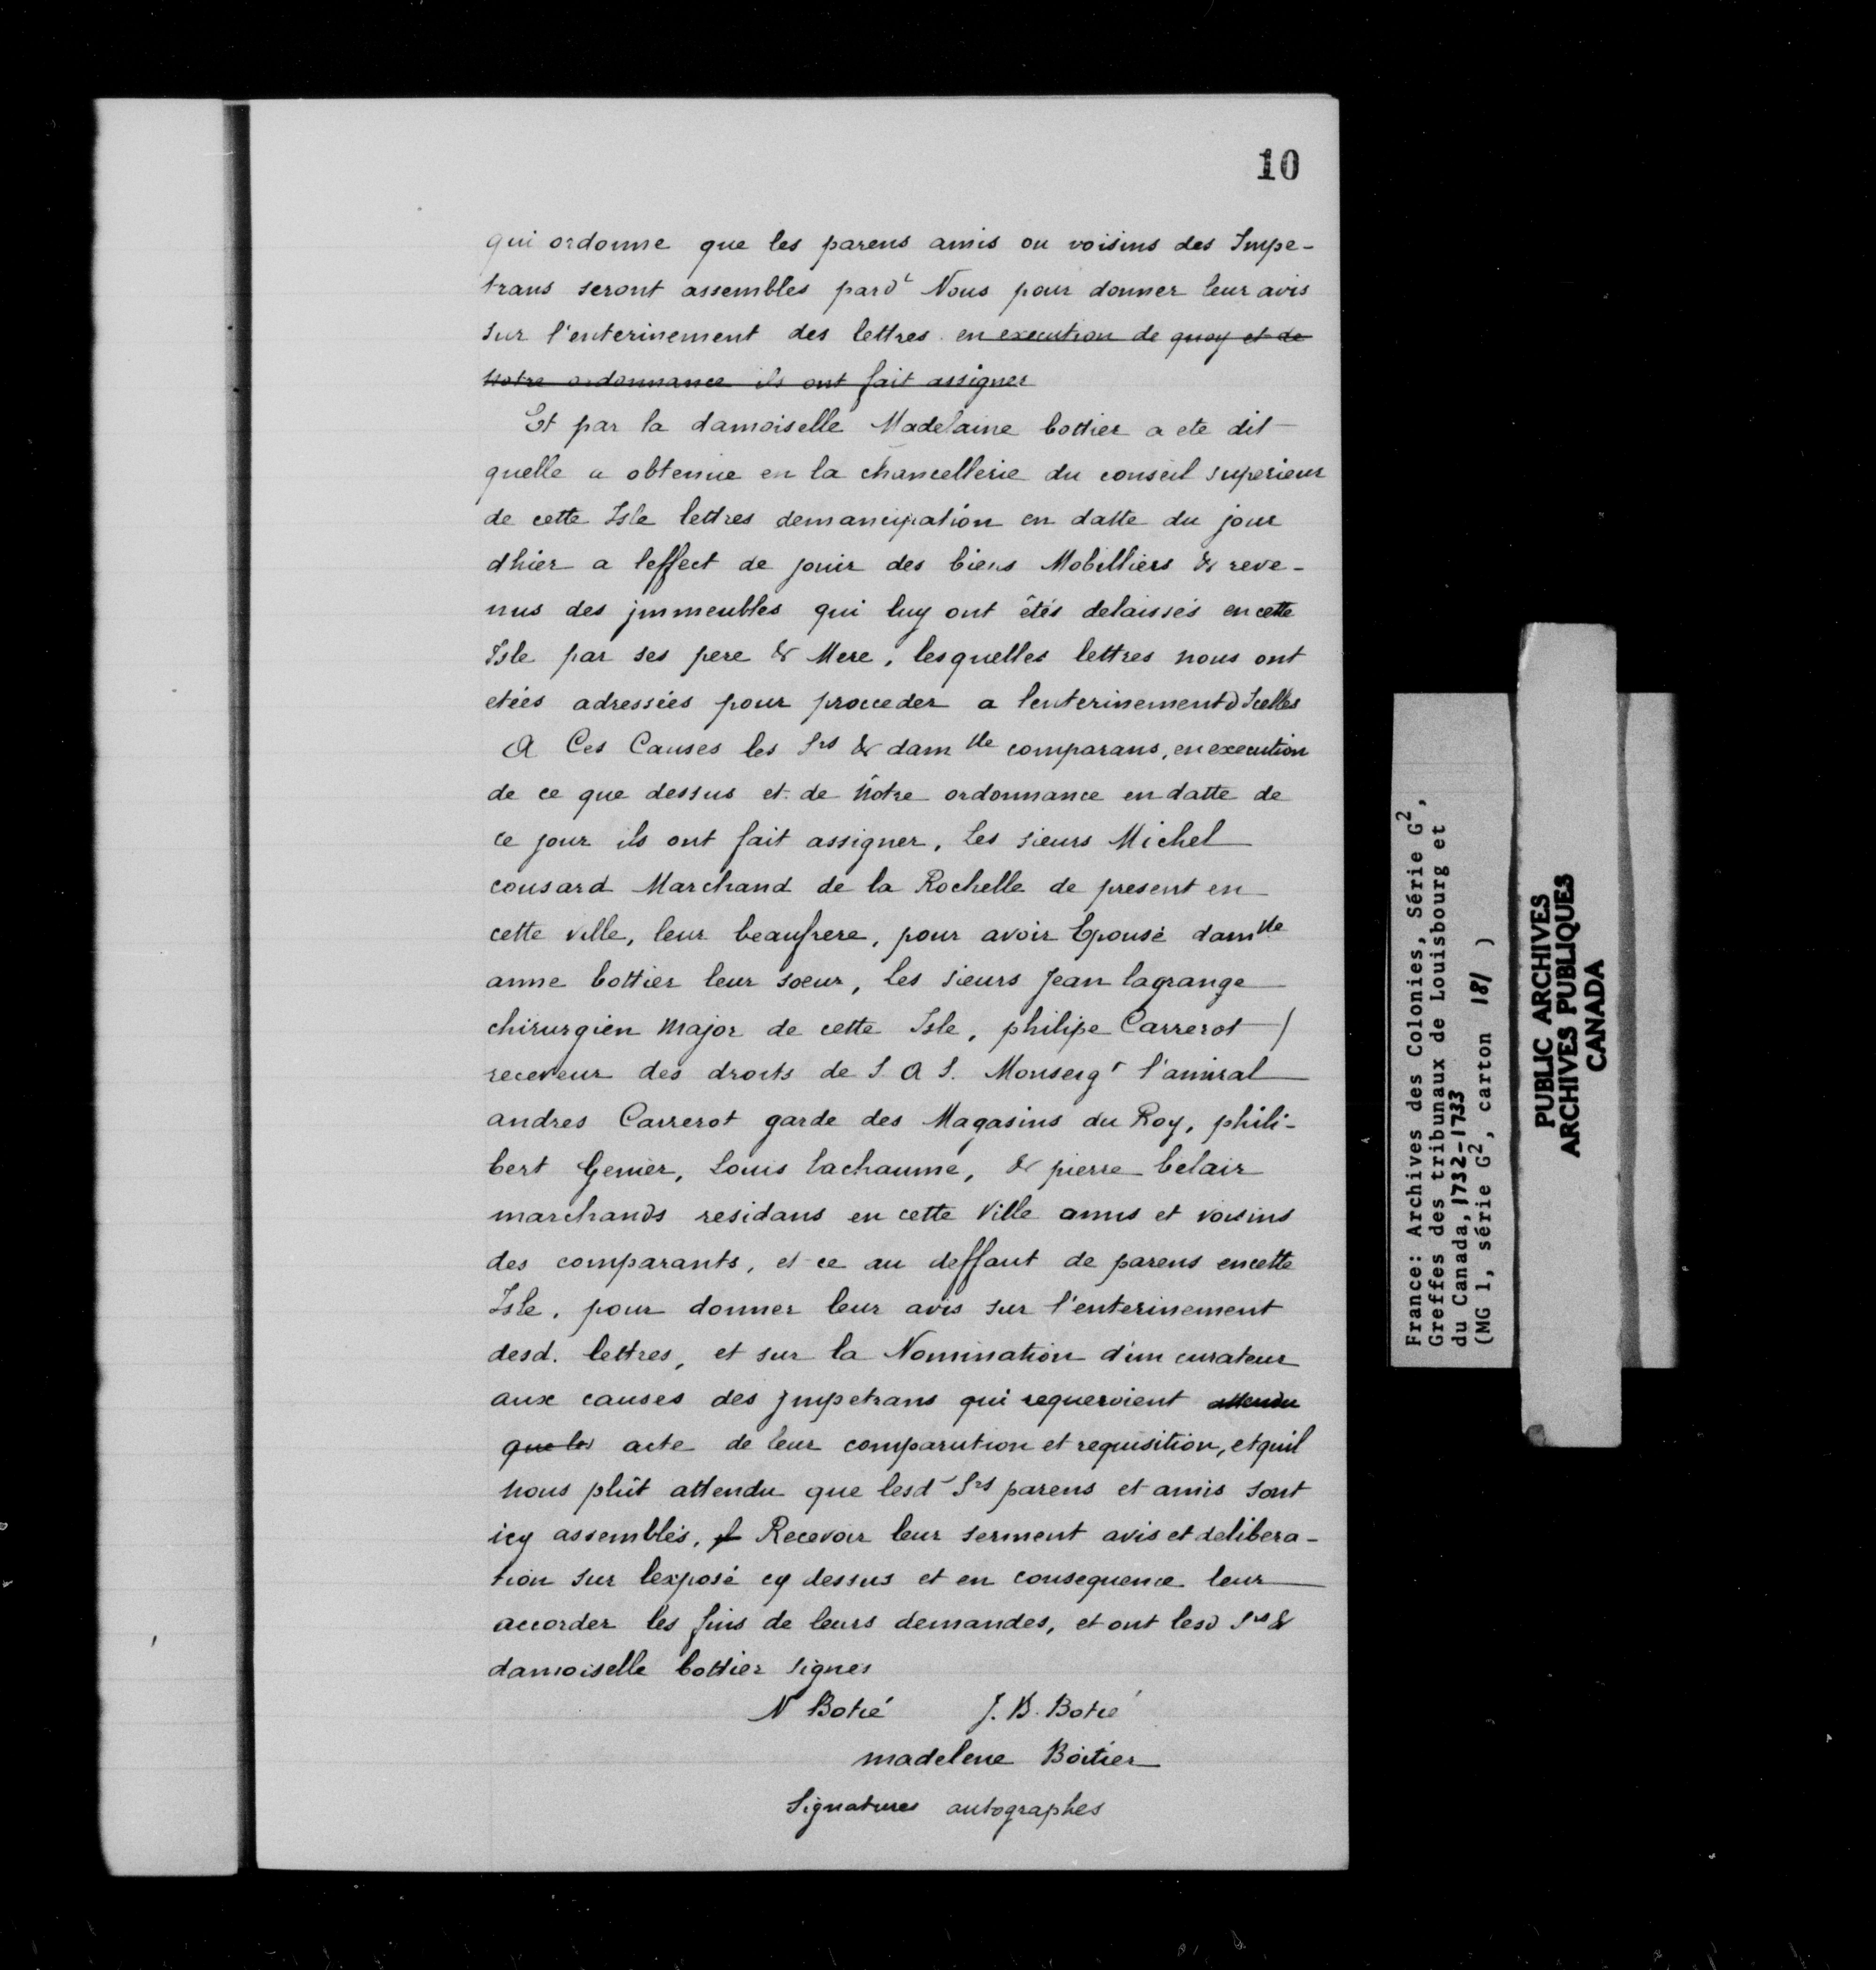 10
qui ordonne que les parens amis ou voisins des Impe-
trans seront assembles pard^t Nous pour donner leur avis
sur l'enterinement des lettres en execution de quoy et de
Notre ordonnance ils ont fait assigner
Et par la damoiselle Madelaine bottier a ete dit
quelle a obtenue en la chancellerie du conseil superieur
de cette Isle lettres demancipation en datte du jour
dhier a leffect de jouir des biens Mobilliers & reve-
nus des jmmeubles qui luy ont êtés delaissés en cette
Isle par ses pere & Mere, lesquelles lettres nous ont
etées adressées pour proceder a lenterinement dIcelles
A Ces Causes les Srs & dam lle comparans, en execution
de ce que dessus et de Nôtre ordonnance en datte de
ce jour ils ont fait assigner, les sieurs Michel
cousard Marchand de la Rochelle de present en
cette ville, leur beaufrere, pour avoir Epousé damlle
anne bottier leur soeur, les sieurs Jean lagrange
chirurgien Major de cette Isle, philipe Carrerot /
receveur des droits de S. A S. Monseigr l'amiral
andres Carrerot garde des Magasins du Roy, phili-
bert Genier, Louis lachaume, & pierre belair
marchands residans en cette Ville amis et voisins
des comparants, et ce au deffaut de parens en cette
Isle, pour donner leur avis sur l'enterinement
desd. lettres, et sur la Nomination d'un curateur
aux causes des jmpetrans qui requeroient attendu
que les acte de leur comparution et requisition, et quil
nous plût attendu que lesd Srs parens et amis sont
icy assemblés, Recevoir leur serment avis et delibera-
tion sur lexposé cy dessus et en consequence leur
accorder les fins de leurs demandes, et ont lesd Srs &
damoiselle bottier signes
N Botié J. B. Botié
madelene Boitier
Signatures autographes
France: Archives des Colonies, Série G2,
Greffes des tribunaux de Louisbourg et
du Canada, 1732-1733
(MG 1, série G2, carton 181 )
PUBLIC ARCHIVES
ARCHIVES PUBLIQUES
CANADA